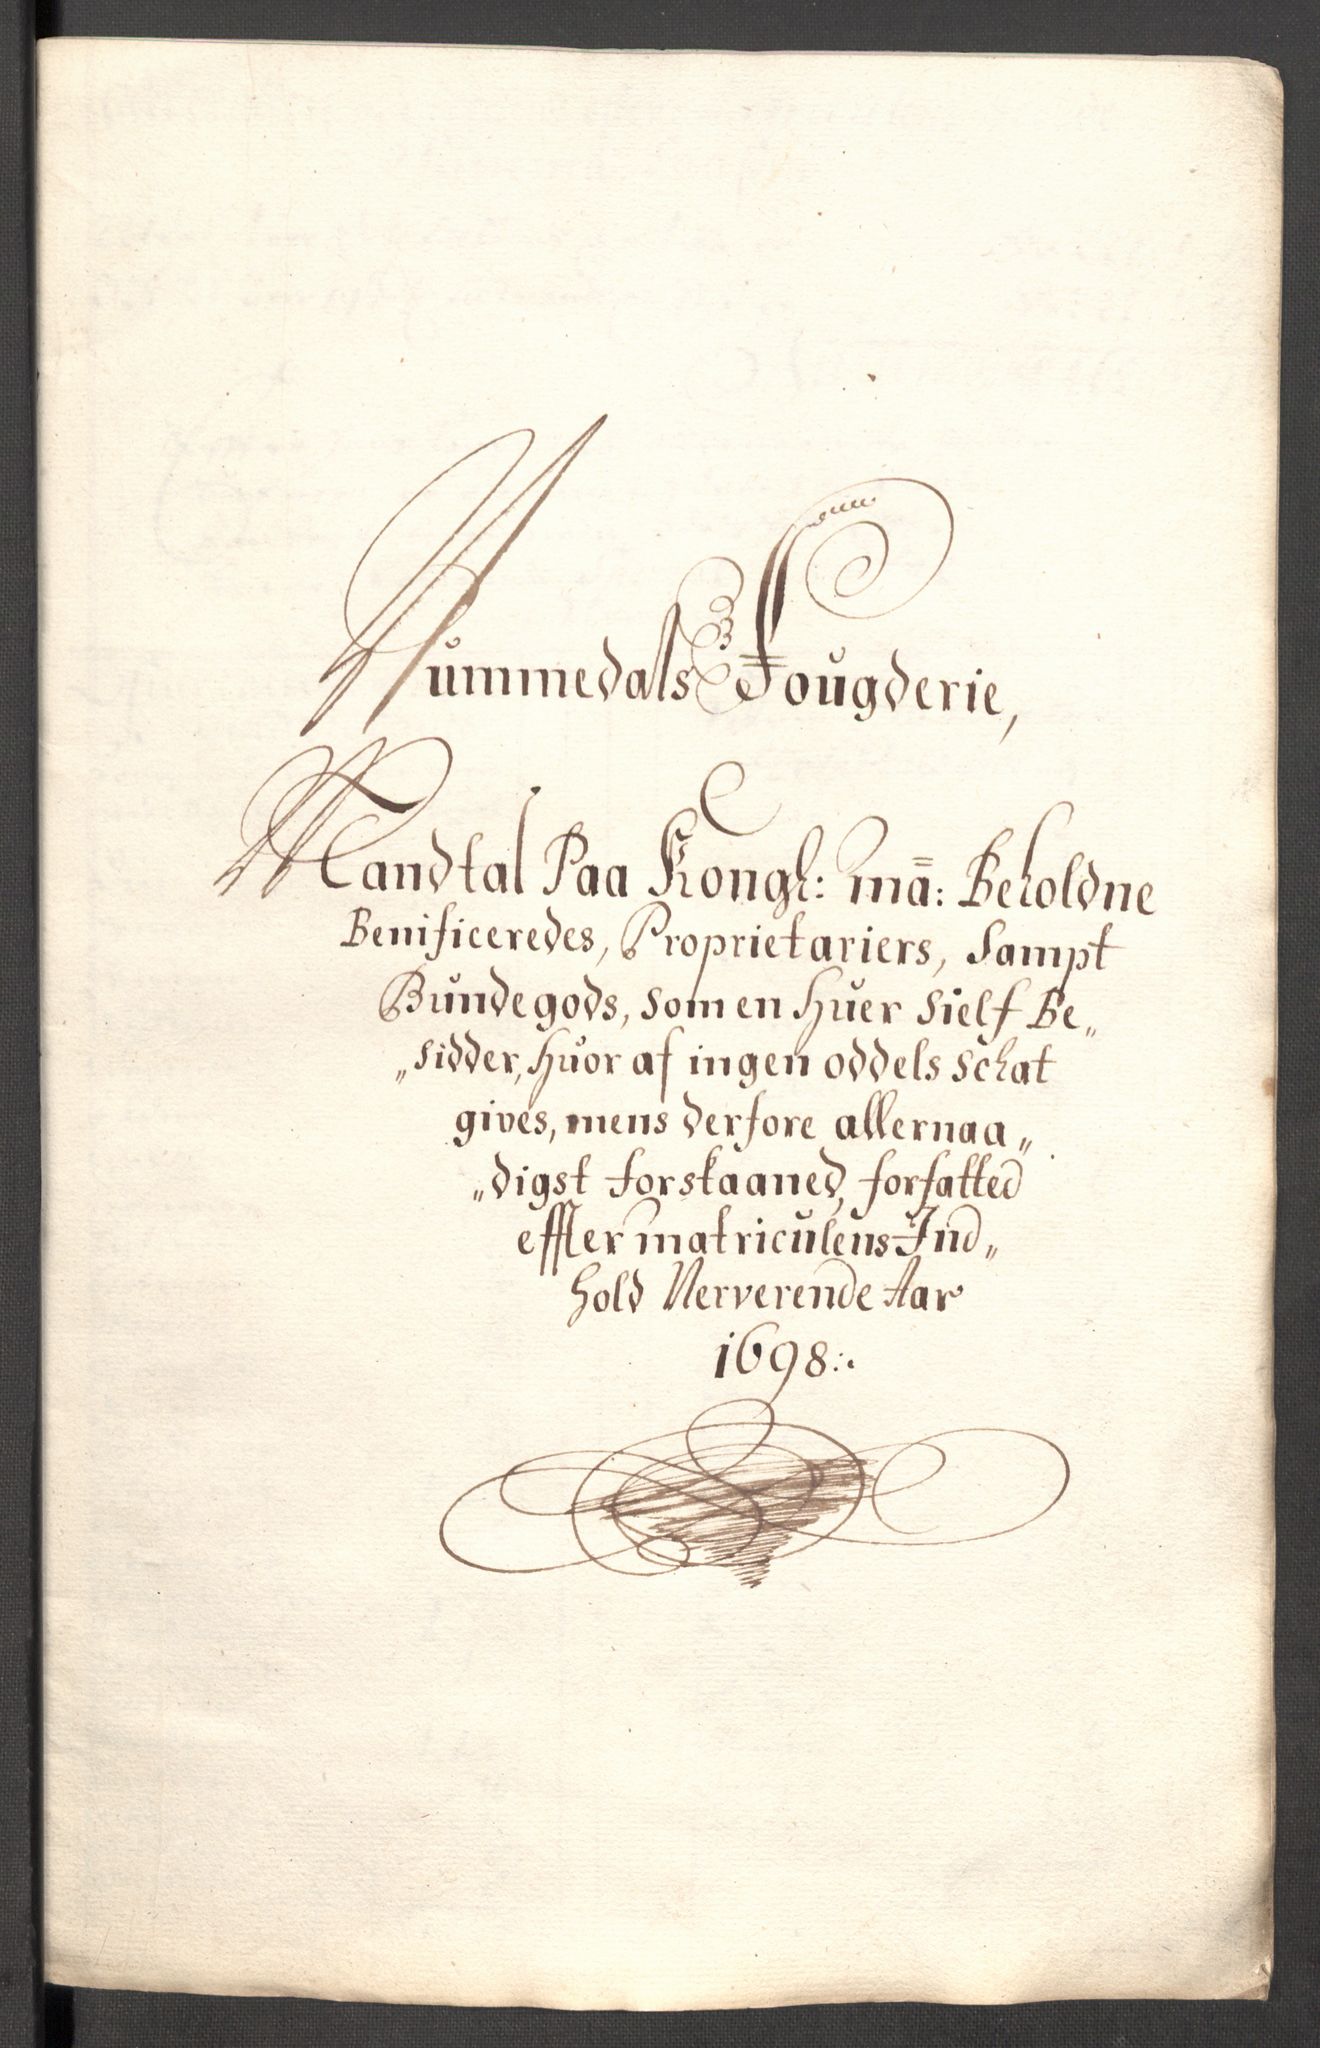 Nummedals Fougderie,
Mandtal Paa Kongl: mã: Beholdne
Benificeredes, Proprietariers, Sampt
Bundegods, som en huer sielf Be„
„sidder, huor af ingen oddels schat
gives, mens derfore allernaa„
„digst forskaaned, forfatted
effter matriculens Ind„
hold Nerverende Aar
1698:.